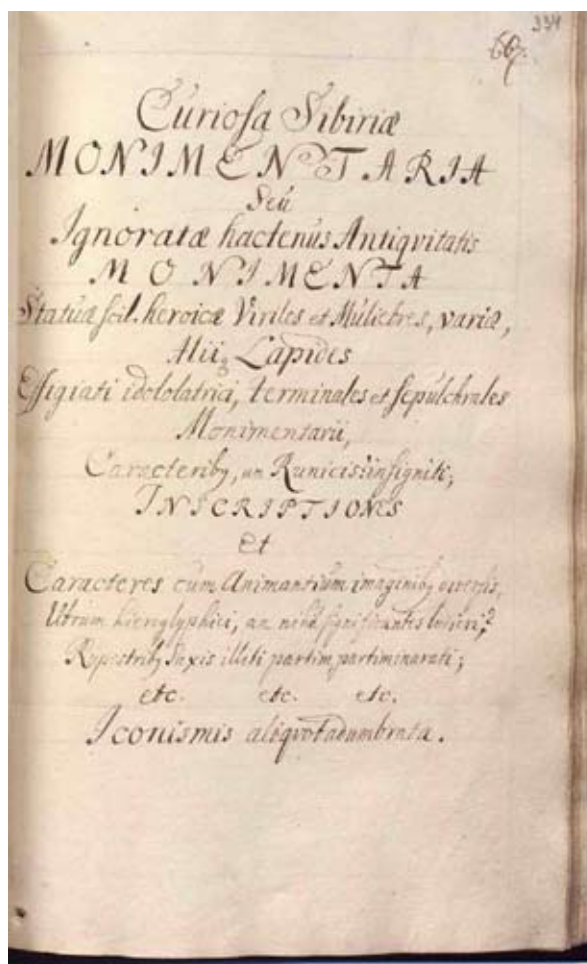 334
67.
Curiosa Sibiriæ
MONIMENTARIA
Seu
Ignoratæ hactenus Antiqvitatis
MONIMENTA
Statuæ scil. heroicæ Viriles et Muliebres, variæ,
Aliiq Lapides
Effigiati idololatrici, terminales et sepulchrales
Monimentarii,
Caracterib9, an Runicis? insigniti;
INSCRIPTIONES
Et
Caracteres cum Animantium imaginib9 diversis,
Utrum hieroglyphici, an nihil significantes lusorii?
Rupestrib9 Saxis illiti partim partim inarati;
etc. etc. etc.
Iconismis aliqvot adumbrata.